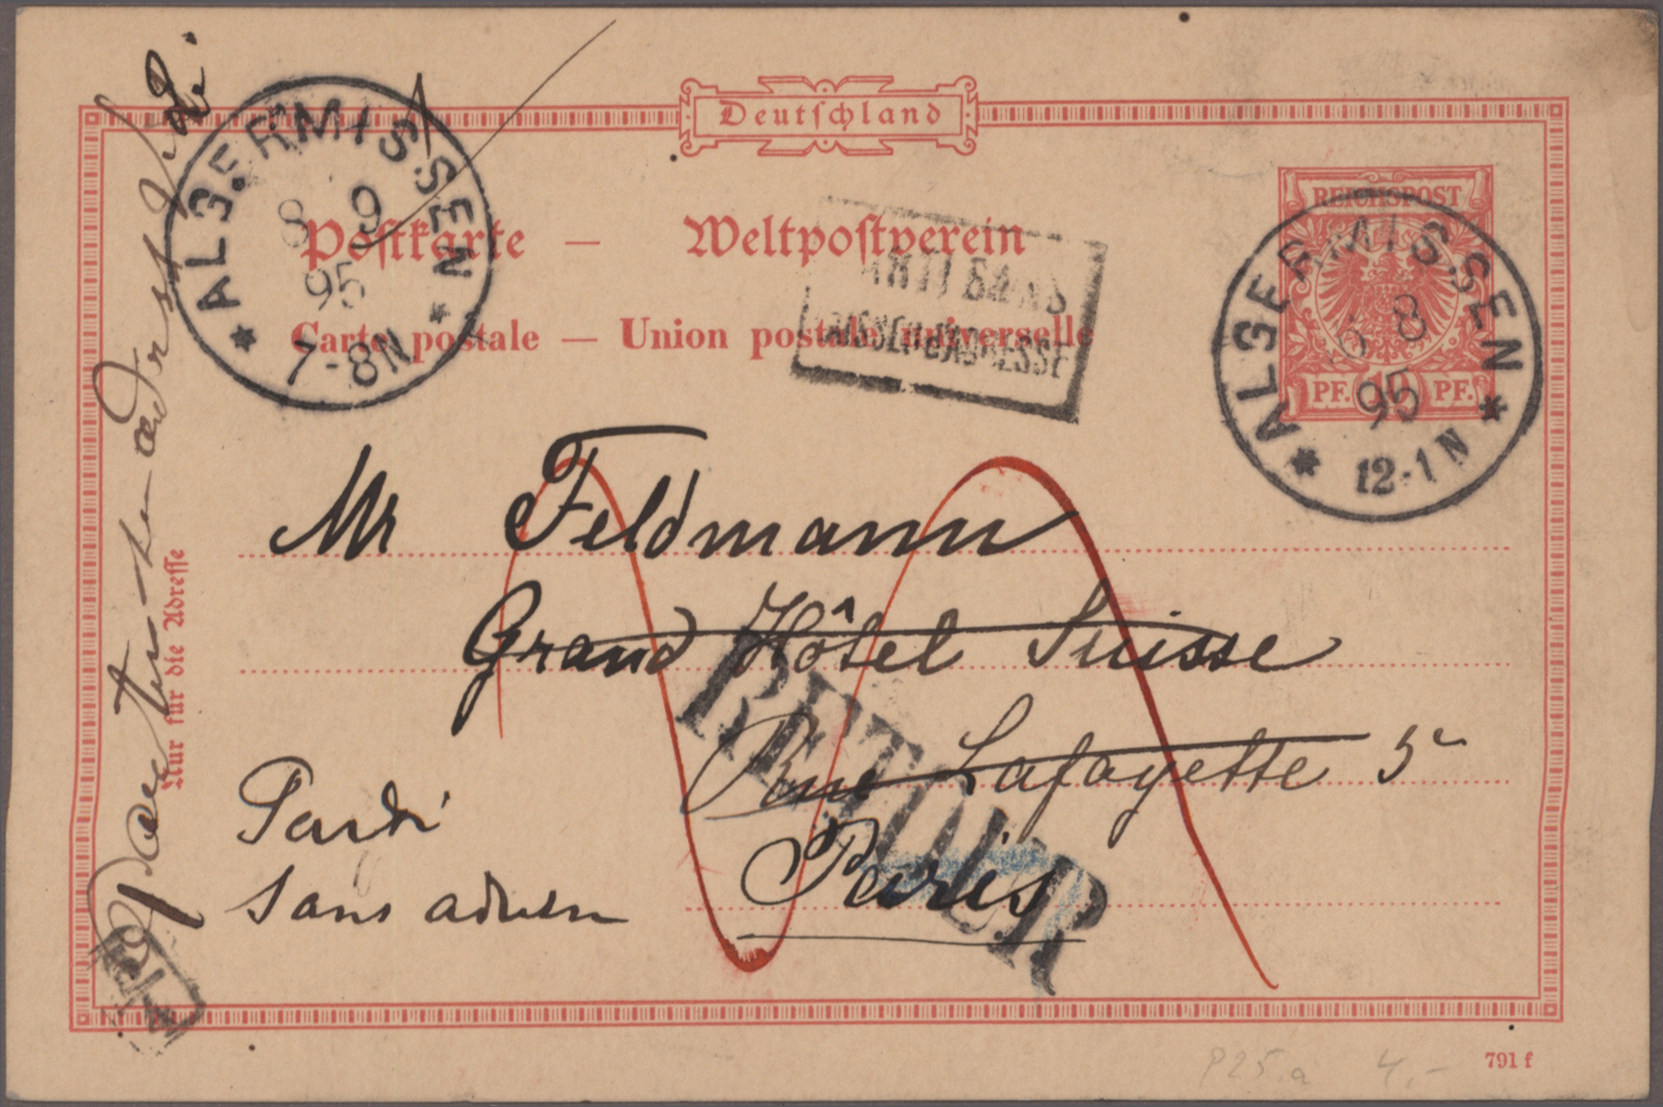 Deutschland
Postkarte — Weltpostverein
Carte postale — Union postale universelle
REICHSPOST
PF. 10 PF.
* ALGERMISSEN *
8 9
95
7-8N
* ALGERMISSEN *
8
95
12-1N
PARTI SANS
LAISSER D'ADRESSE
Mr Feldmann
Grand Hôtel Suisse
Rue Lafayette 5
Paris
RETOUR
Parti
sans adresse
Nur für die Adresse
791 f
P25.a 4,-